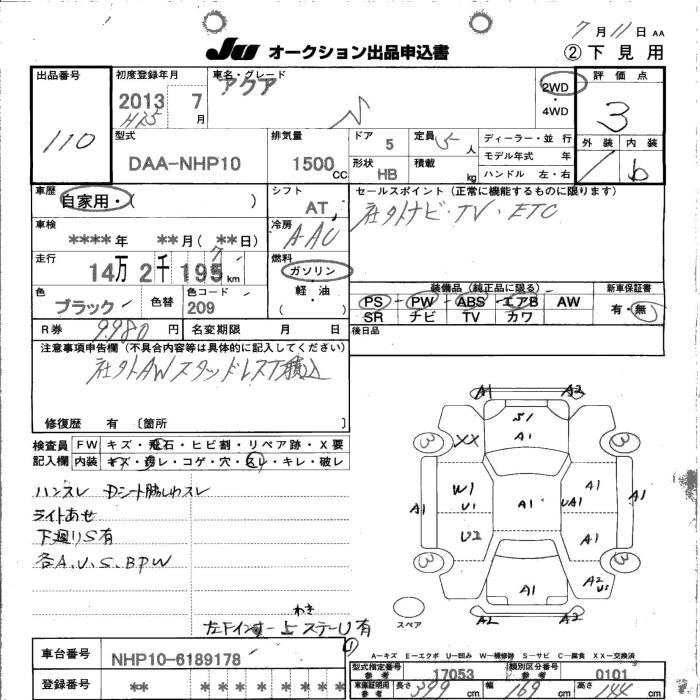 7月11日 AA
JU オークション出品申込書 ②下見用
出品番号 110
初度登録年月 2013 7月 H25
車名・グレード アクア
2WD・4WD
評価点 3
外装 内装 b
型式 DAA-NHP10
排気量 1500cc
ドア 5
定員 5人
形状 HB
積載 kg
ディーラー・並行
モデル年式 年
ハンドル 左・右
車歴 自家用・( )
シフト AT
車検 ****年 **月(**日)
冷房 AAC
セールスポイント(正常に機能するものに限ります)
社外ナビ・TV・ETC
走行 14万2千195km 7
燃料 ガソリン・軽・油 ( )
色 ブラック
色替
色コード 209
装備品(純正品に限る)
PS PW ABS エアB AW
SR ナビ TV カワ
新車保証書 有・無
R券 9980円
名変期限 月 日
後日品
注意事項申告欄(不具合内容等は具体的に記入してください)
社外AW スタッドレスT積込
修復歴 有 〔箇所 〕
検査員記入欄
FW キズ・飛石・ヒビ割・リペア跡・X要
内装 キズ・汚レ・コゲ・穴・スレ・キレ・破レ
ハンスレ Dシート脇しわスレ
ライトあせ
下廻りS有
各A.U.S.BPW
わき
左下インナー上ステーU有
A1 A2
S1
A1
3 3
XX
W1
U1
U2
A1 A1 A1 UA1 A1 A1
3 3
A1
A2
US
スペア
A2 A2
①
A-キズ E-エクボ U-凹み W-補修跡 S-サビ C-腐食 XX-交換済
車台番号 NHP10-6189178
登録番号 ** **
型式指定番号 参考 17053
類別区分番号 参考 0101
車庫証明用 参考 長さ 399cm 幅 169cm 高さ 144cm